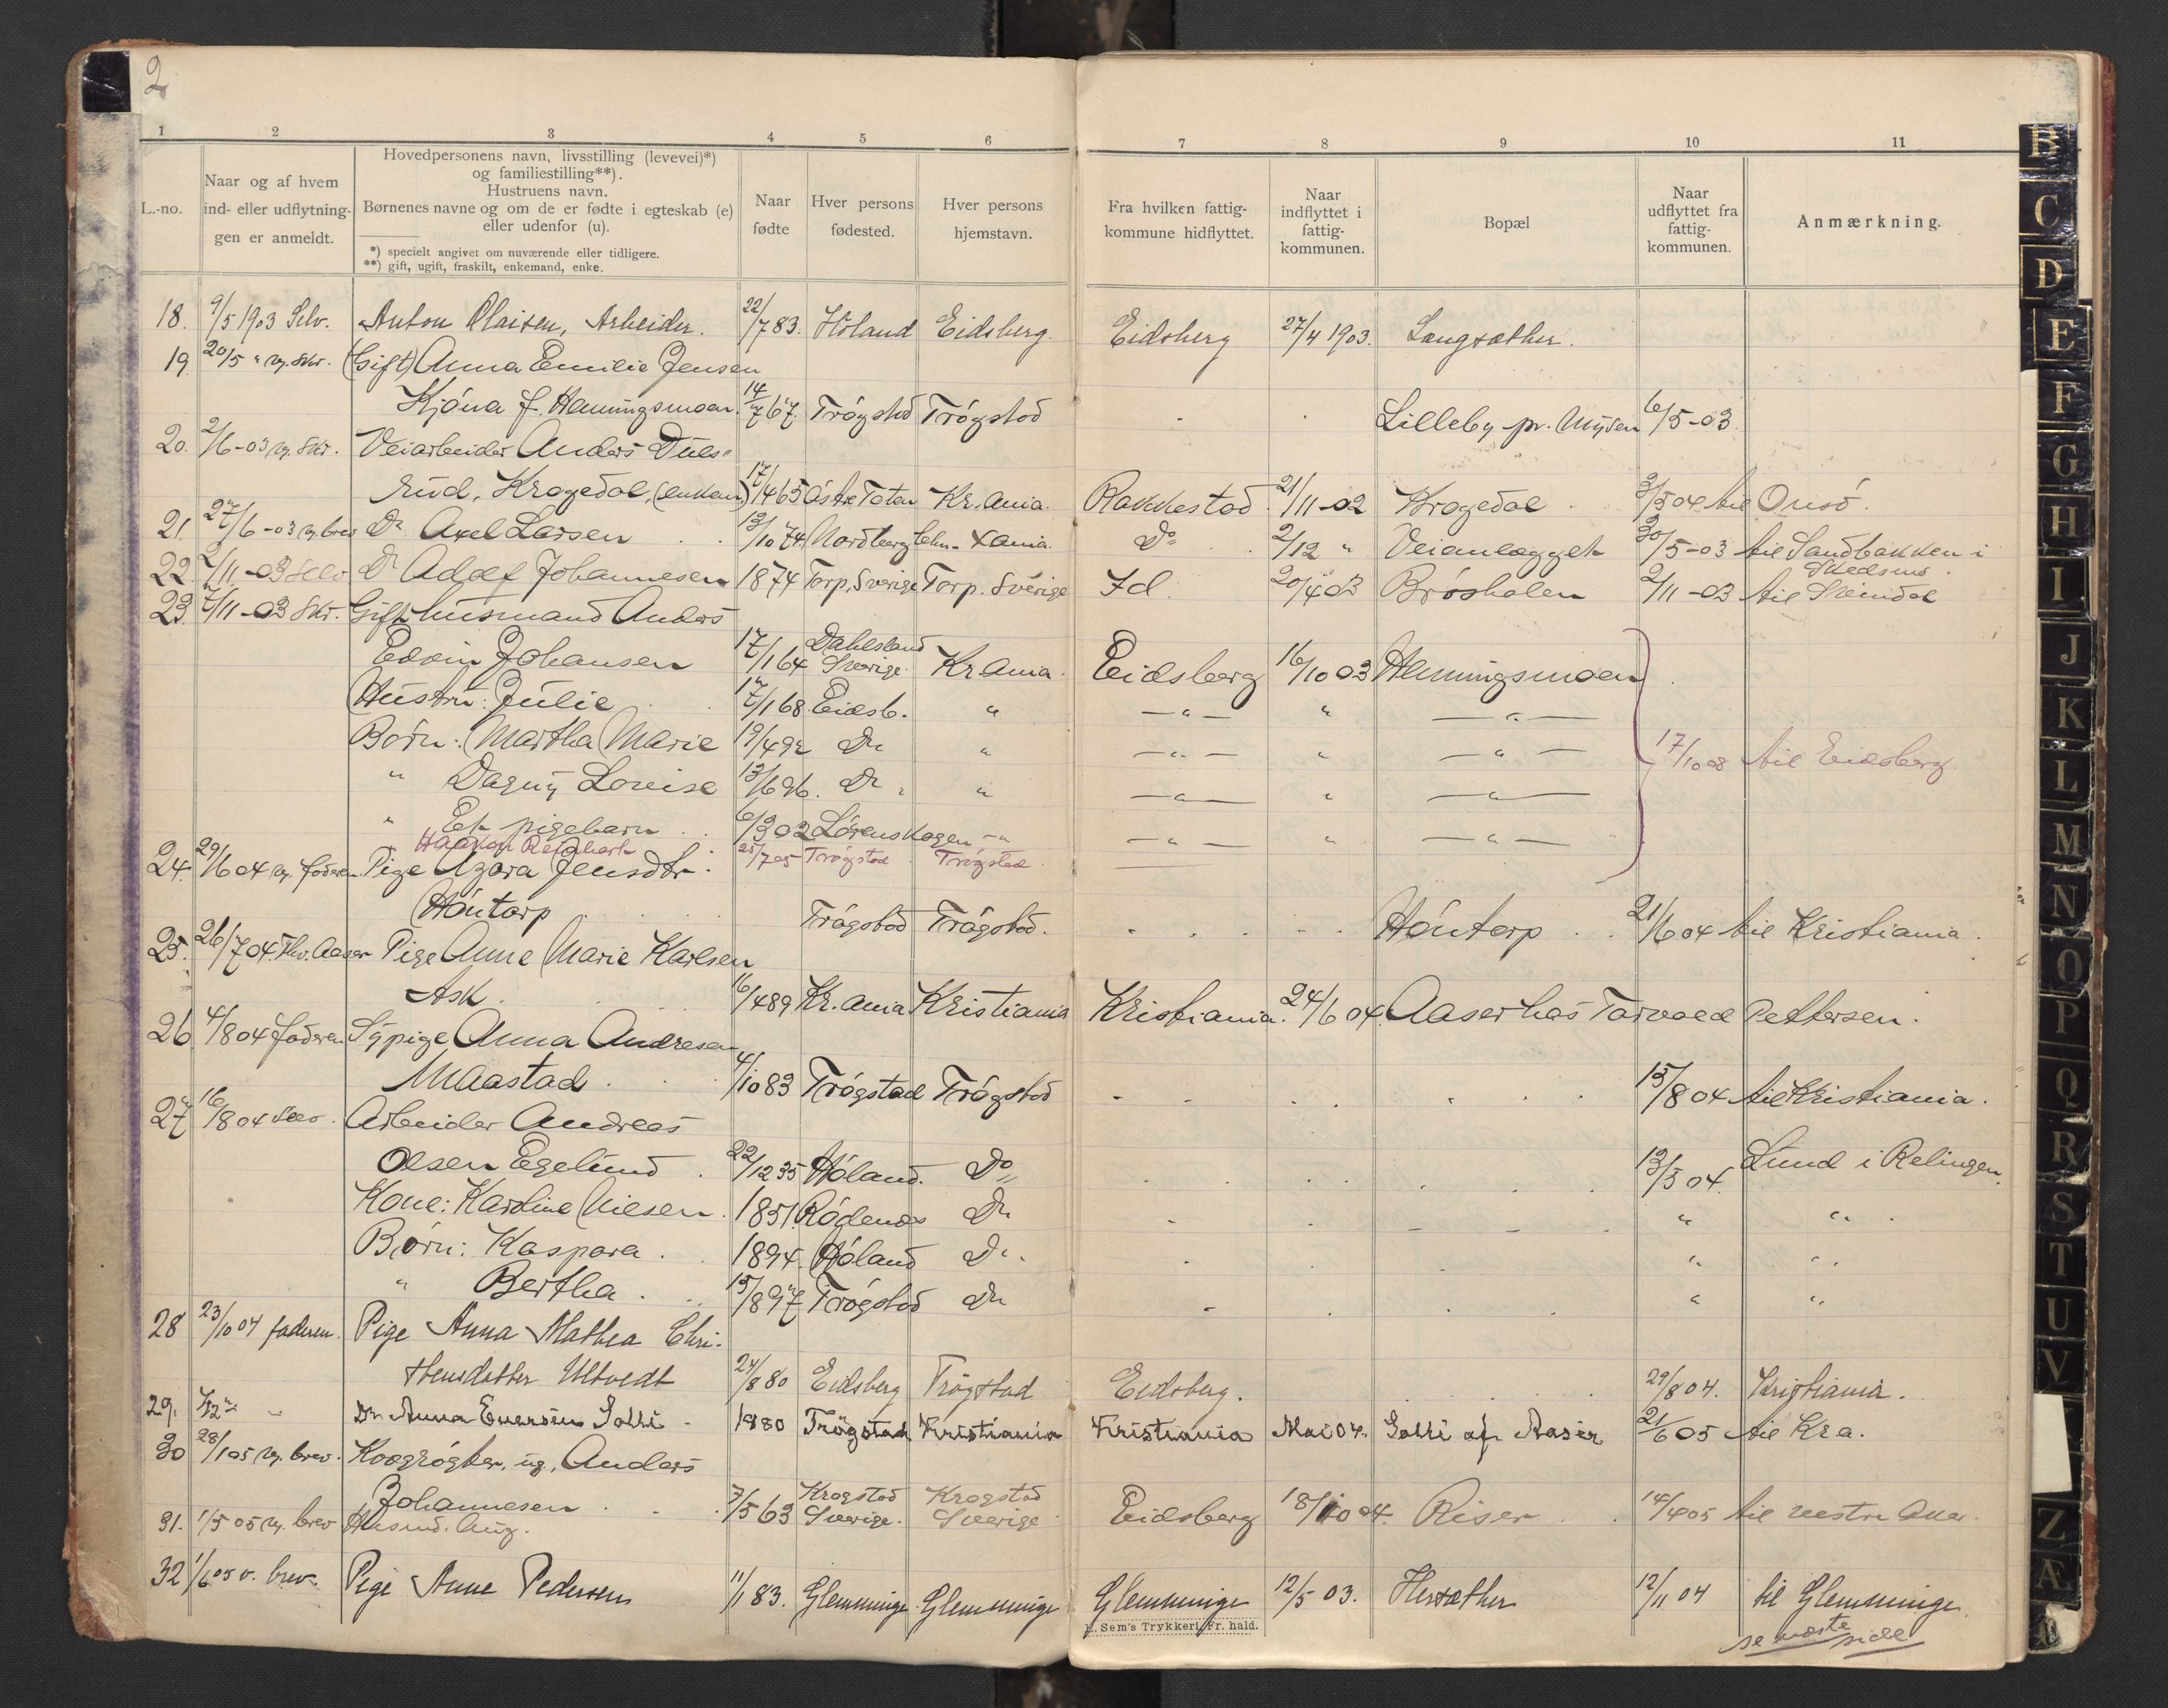 2
1 2 3 4 5 6 7 8 9 10 11
L.-no.
Naar og af hvem
ind- eller udflytnin-
gen er anmeldt.
Hovedpersonens navn, livsstilling (levevei)*)
og familiestilling**).
Hustruens navn.
Børnenes navne og om de er fødte i egteskab (e)
eller udenfor (u).
*) specielt angivet om nuværende eller tidligere.
**) gift, ugift, fraskilt, enkemand, enke.
Naar
fødte
Hver persons
fødested.
Hver persons
hjemstavn.
Fra hvilken fattig-
kommune hidflyttet.
Naar
indflyttet i
fattig-
kommunen.
Bopæl
Naar
udflyttet fra
fattig-
kommunen.
Anmærkning.
18. 9/5 1903 Selv. Anton Olaisen, Arbeider. 22/7 83. Høland Eidsberg. Eidsberg 27/4 1903. Langsæther.
19 20/5 " Skr. (Gift) Anna Emilie Jensen
Kjöna f. Henningsmoen. 14/7 67. Trögstad Trögstad Lilleby pr. Mysen 6/5-03.
20. 2/6-03 Skr. Veiarbeider Anders Duls-
rud, Kragedal, 17/4 65 Östre Toten Kr.ania. Rakkestad 21/11-02 Kragedal 3/5 04 til Onsö.
21. 27/6-03 brev Do Axel Larsen 13/10 74. Xania. Do 2/12 " Veianlægget 30/5-03 til Sandbakken i
Skedsmo.
22. 2/11-03 Selv Do Adolf Johannesen 1874 Torp, Sverige Torp, Sverige Id. 20/4 03 Brösholen 2/11-03 til
23. 7/11-03 Skr. Gift husmand Anders
Edvin Johansen 17/1 64 Dahlsland Sverige. Kr.ania. Eidsberg 16/10 03 Henningsmoen
Hustru: Julie 17/1 68. Eidsb. " — " — " — " —
Börn: Martha Marie 19/4 92 Do " — " — " — " — 17/10 08 til Eidsberg.
" Dagny Lovise 13/6 96. Do " — " — " — " —
" Et pigebarn 6/3 02 Lörenskogen — " — " — " — " —
Haakon Reinhart 25/7 05 Trögstad Trögstad.
24. 29/6 04 faderen Pige Agara Jensdtr.
Höntorp Trögstad Trögstad. Höntorp 21/6 04 til Kristiania.
25. 26/7 04. Aaser Pige Anne Marie Karlsen
Ask. 16/4 89 Kr.ania Kristiania Kristiania. 24/6 04. Aaser hos Torvald Pettersen.
26. 4/8 04 faderen Sypige Anna Andresen
Maastad 4/10 83 Trögstad Trögstad 15/8 04 til Kristiania.
27 16/8 04 Selv. Arbeider Andreas
Olsen Egelund 22/12 35 Höland. Do 13/5 04. Lund i Relingen.
Kone: Karoline Nilsen. 1851. Rödenes Do " "
Börn: Kaspara. 1894. Höland Do " "
" Bertha. 15/8 97 Trögstad Do " "
28 23/10 04 faderen. Pige Anna Mathea Chri-
stensdatter Ultvedt 24/8 80 Eidsberg Trögstad Eidsberg. 29/8 04. Kristiania.
29. Do Anna Evensen Solli 1880 Trögstad Kristiania Kristiania Mai 04. Solli af Aaser 21/6 05 til Kra.
30 28/1 05 brev. ug. Anders
Johannesen 7/5 63 Krogstad Sverige. Krogstad Sverige. Eidsberg 18/10 04. Riser 14/4 05 til vestre Aker.
31. 1/5 05 brev Husmd. Aug.
32 1/6 05 v. brev. Pige Anne Pedersen 11/1 83. Glemminge. Glemminge Glemminge 12/5 03. Hersæther 12/11 04 til Glemminge.
se næste side
L. Sem's Trykkeri, Fr. hald.
B
C
D
E
F
G
H
I
J
K
L
M
N
O
P
Q
R
S
T
U
V
Z
Æ